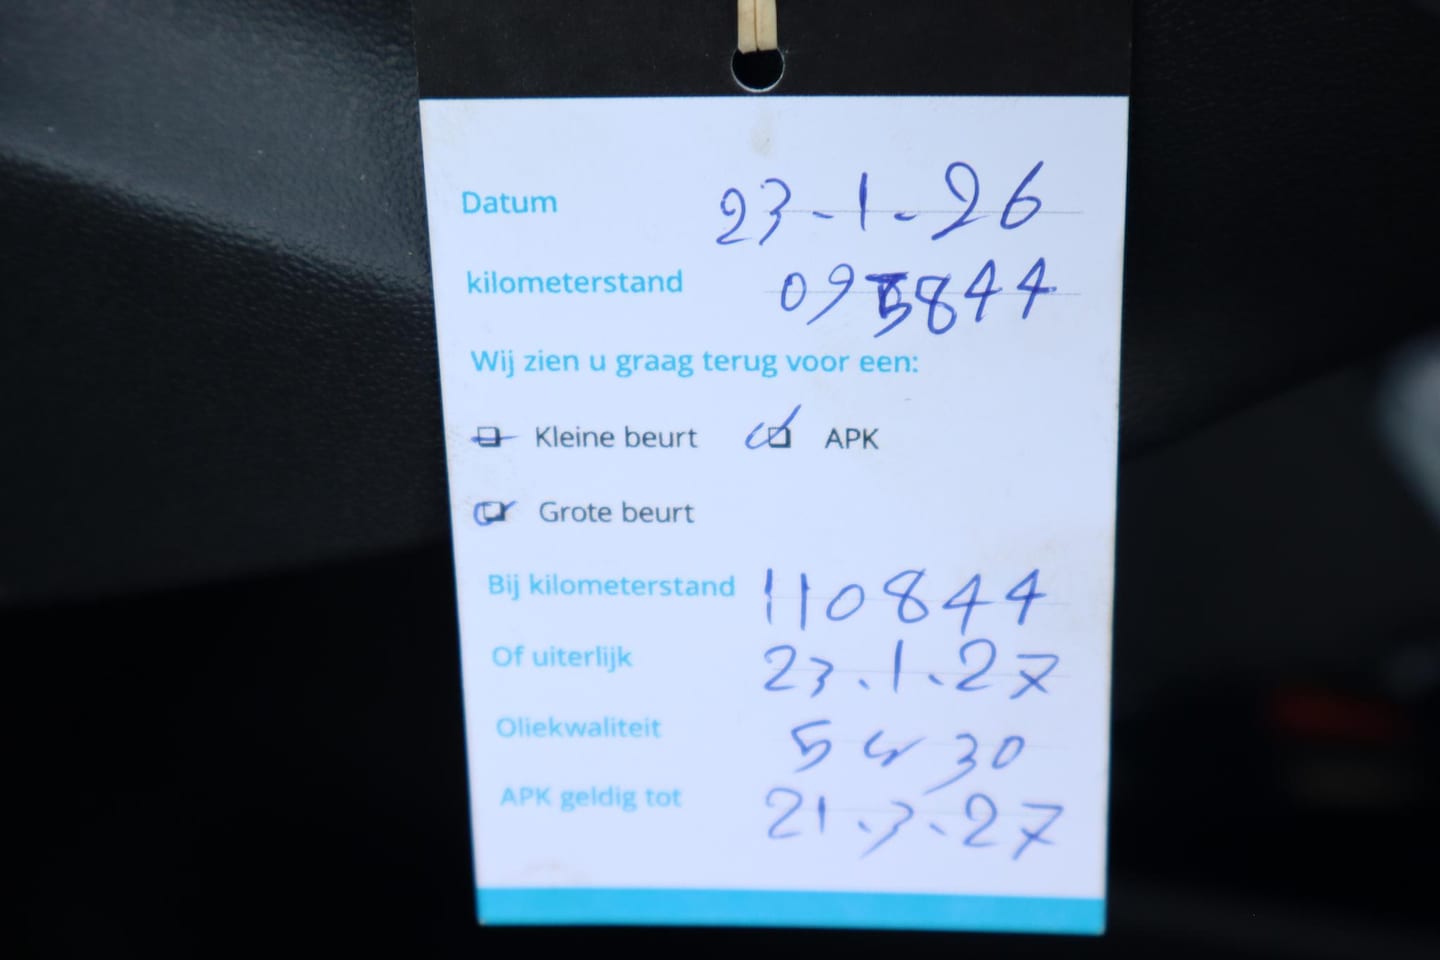 Datum 23-1-26
kilometerstand 095844
Wij zien u graag terug voor een:
Kleine beurt APK
Grote beurt
Bij kilometerstand 110844
Of uiterlijk 23.1.27
Oliekwaliteit 5w30
APK geldig tot 21.3.27